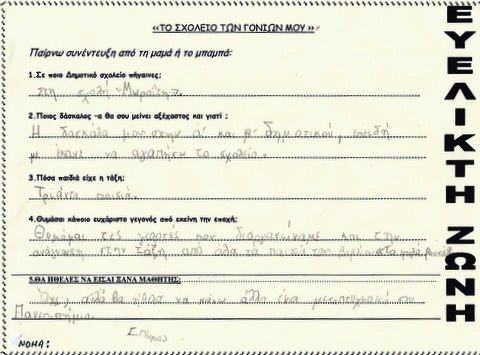 «ΤΟ ΣΧΟΛΕΙΟ ΤΩΝ ΓΟΝΙΩΝ ΜΟΥ »
Παίρνω συνέντευξη από τη μαμά ή το μπαμπά:
1.Σε ποιο Δημοτικό σχολείο πήγαινες;
Στη σχολή «Μωραΐτη».
2.Ποιος δάσκαλος -α θα σου μείνει αξέχαστος και γιατί ;
Η δασκάλα μου στην α' και β' δημοτικού, επειδή
με έκανε να αγαπήσω το σχολείο.
3.Πόσα παιδιά είχε η τάξη;
Τριάντα παιδιά.
4.Θυμάσαι κάποιο ευχάριστο γεγονός από εκείνη την εποχή;
Θυμάμαι τις γιορτές που διοργανώναμε και την
ανάγνωση στην τάξη από όλα τα παιδιά του βιβλίου
5.ΘΑ ΗΘΕΛΕΣ ΝΑ ΕΙΣΑΙ ΞΑΝΑ ΜΑΘΗΤΗΣ;
Όχι, αλλά θα ήθελα να κάνω άλλο ένα μεταπτυχιακό στο
Πανεπιστήμιο.
ΝΟΗΑ:
ΕΥΕΛΙΚΤΗ ΖΩΝΗ